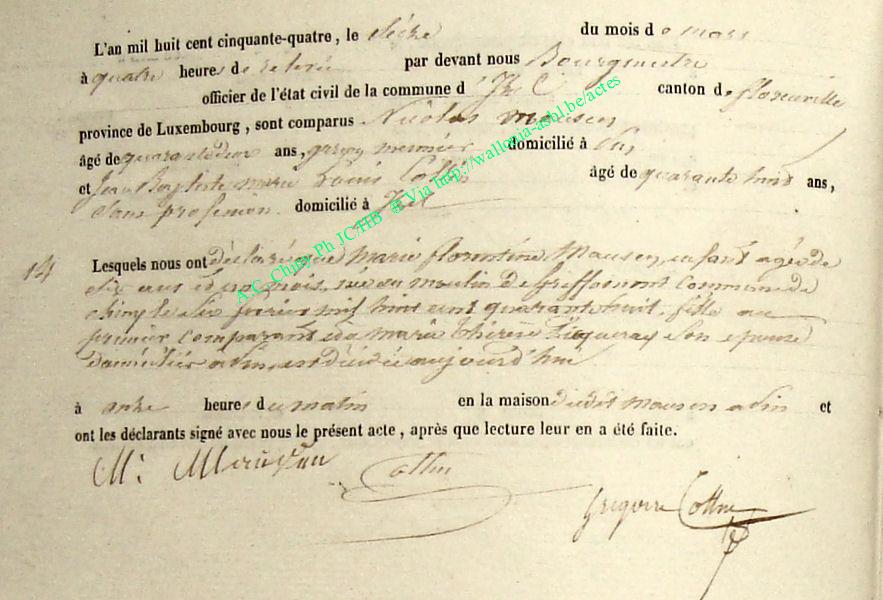 L'an mil huit cent cinquante-quatre, le seize du mois de mars
à quatre heures de relevée par devant nous Bourgmestre
officier de l'état civil de la commune d' canton de florenville
province de Luxembourg, sont comparus Nicolas Mausen
âgé de quarante deux ans, garçon meunier domicilié à
et Jean Baptiste marie Louis Collin âgé de quarante huit ans,
sans profession domicilié à Izel
14 Lesquels nous ont déclaré que Marie florentine Mausen, enfant agée de
six ans et un mois, née au moulin de Griffomont commune de
chiny le six fevrier mil huit cent quarante huit, fille au
premier comparant et à Marie thérèse son epouse
domiciliés est décédée aujourd'hui
à onze heures du matin en la maison dudit Mausen et
ont les déclarants signé avec nous le présent acte, après que lecture leur en a été faite.
N: Mausen Collin
Gregoire Collin
A.C. Chiny Ph JC/HB ® Via http://wallonia-asbl.be/actes